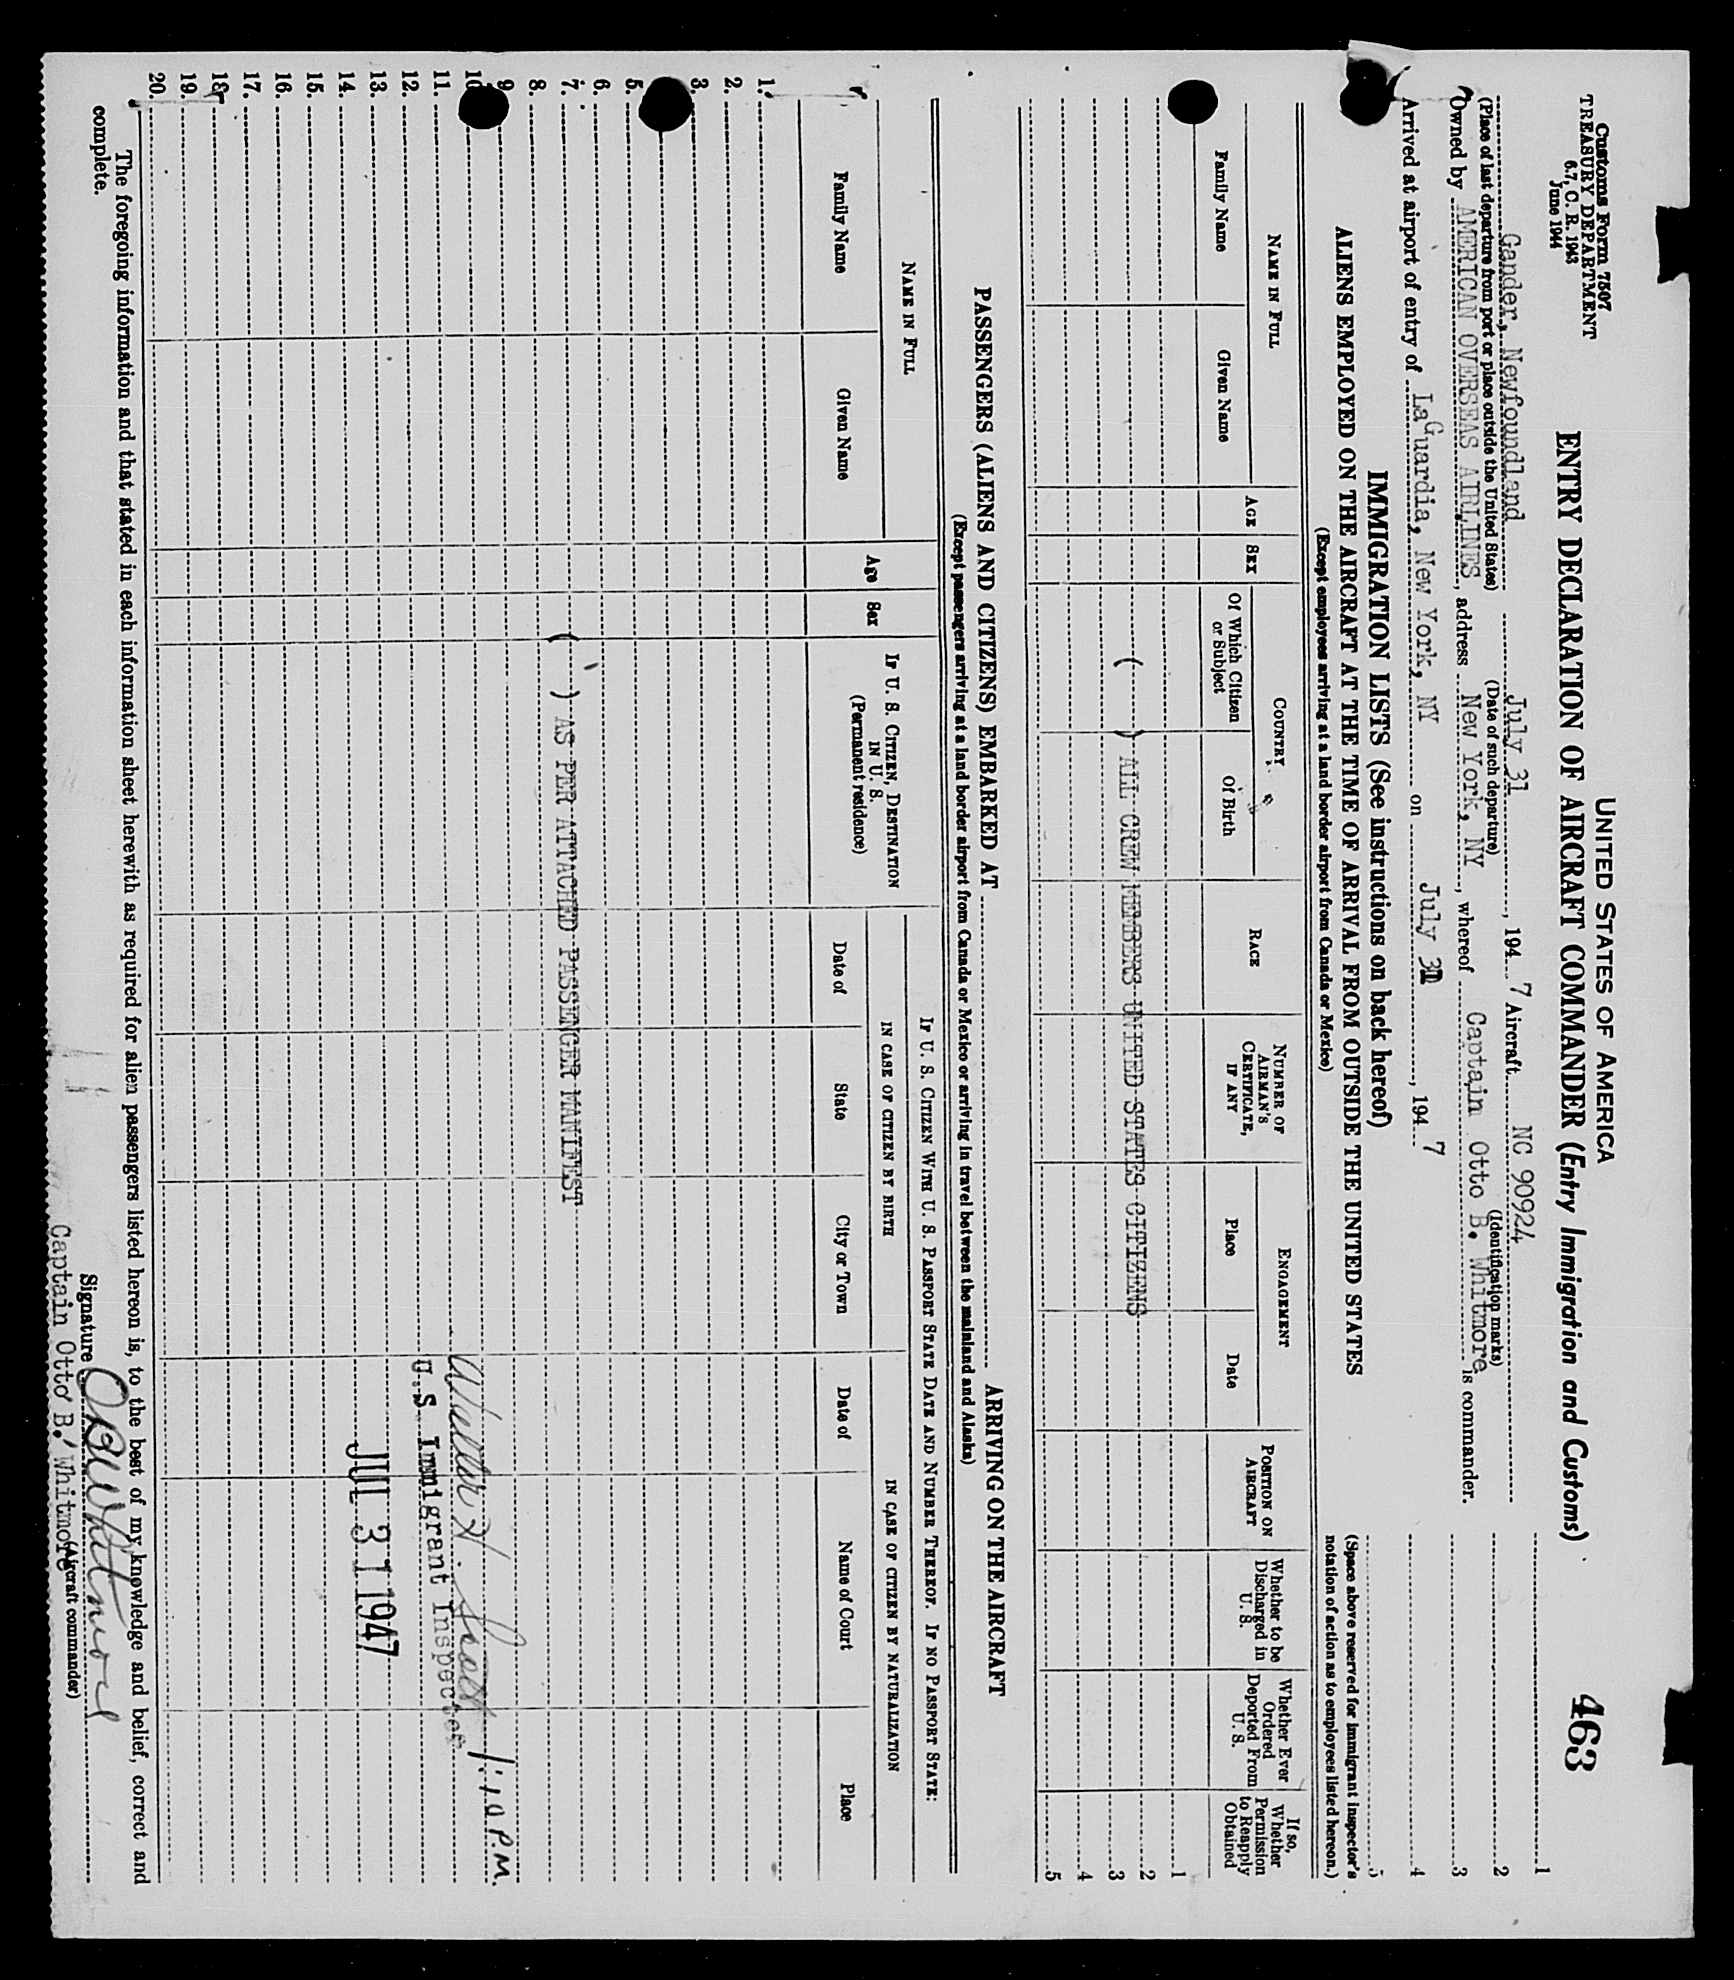 Customs Form 7507
TREASURY DEPARTMENT
6.7, C. R. 1943
June 1944
UNITED STATES OF AMERICA
463
ENTRY DECLARATION OF AIRCRAFT COMMANDER (Entry Immigration and Customs)
Gander, Newfoundland July 31, 194 7 Aircraft NC 90924
(Place of last departure from port or place outside the United States) (Date of such departure) (Identification marks)
Owned by AMERICAN OVERSEAS AIRLINES, address New York, NY, whereof Captain Otto B. Whitmore is commander.
Arrived at airport of entry of LaGuardia, New York, NY on July 31, 194 7
1
2
3
4
5
(Space above reserved for immigrant inspector's
notation of action as to employees listed hereon.)
IMMIGRATION LISTS (See instructions on back hereof)
ALIENS EMPLOYED ON THE AIRCRAFT AT THE TIME OF ARRIVAL FROM OUTSIDE THE UNITED STATES
(Except employees arriving at a land border airport from Canada or Mexico)
NAME IN FULL
Family Name
Given Name
AGE
SEX
COUNTRY
Of Which Citizen
or Subject
Of Birth
RACE
NUMBER OF
AIRMAN'S
CERTIFICATE,
IF ANY
ENGAGEMENT
Place
Date
POSITION ON
AIRCRAFT
Whether to be
Discharged in
U. S.
Whether Ever
Ordered
Deported From
U. S.
If so,
Whether
Permission
to Reapply
Obtained
1
2
( ) ALL CREW MEMBERS UNITED STATES CITIZENS 3
4
5
PASSENGERS (ALIENS AND CITIZENS) EMBARKED AT ARRIVING ON THE AIRCRAFT
(Except passengers arriving at a land border airport from Canada or Mexico or arriving in travel between the mainland and Alaska)
NAME IN FULL
Family Name
Given Name
Age
Sex
IF U. S. CITIZEN, DESTINATION
IN U. S.
(Permanent residence)
IF U. S. CITIZEN WITH U. S. PASSPORT STATE DATE AND NUMBER THEREOF. IF NO PASSPORT STATE:
IN CASE OF CITIZEN BY BIRTH
Date of
State
City or Town
IN CASE OF CITIZEN BY NATURALIZATION
Date of
Name of Court
Place
1.
2.
3.
5.
6.
7. ( ) AS PER ATTACHED PASSENGER MANIFEST
8.
9.
10 1:10 P.M.
11.
12. U.S. Immigrant Inspector
13.
14. JUL 31 1947
15.
16.
17.
18.
19.
20.
The foregoing information and that stated in each information sheet herewith as required for alien passengers listed hereon is, to the best of my knowledge and belief, correct and
complete.
Signature OBWhitmore
(Aircraft commander)
Captain Otto B. Whitmore